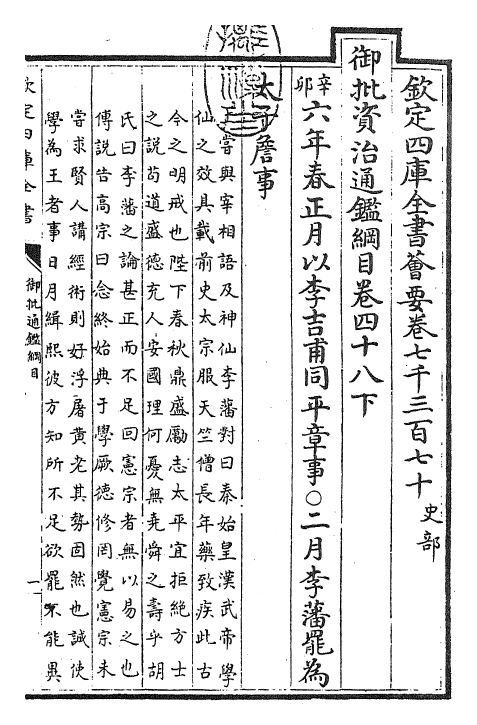 欽定四庫全書薈要卷七千三百七十 史部
御批資治通鑑綱目卷四十八下
辛卯六年春正月以李吉甫同平章事○二月李藩罷為
太子詹事
嘗與宰相語及神仙李藩對曰秦始皇漢武帝學
仙之效具載前史太宗服天竺僧長年藥致疾此古
今之明戒也陛下春秋鼎盛勵志太平宜拒絶方士
之說茍道盛德充人安國理何憂無堯舜之夀乎胡
氏曰李藩之論甚正而不足回憲宗者無以易之也
傅說告高宗曰念終始典于學厥德修罔覺憲宗未
嘗求賢人講經術則好浮屠黄老其勢固然也誠使
學為王者事日月緝熙彼方知所不足欲罷不能異
欽定四庫全書
御批通鑑綱目
一